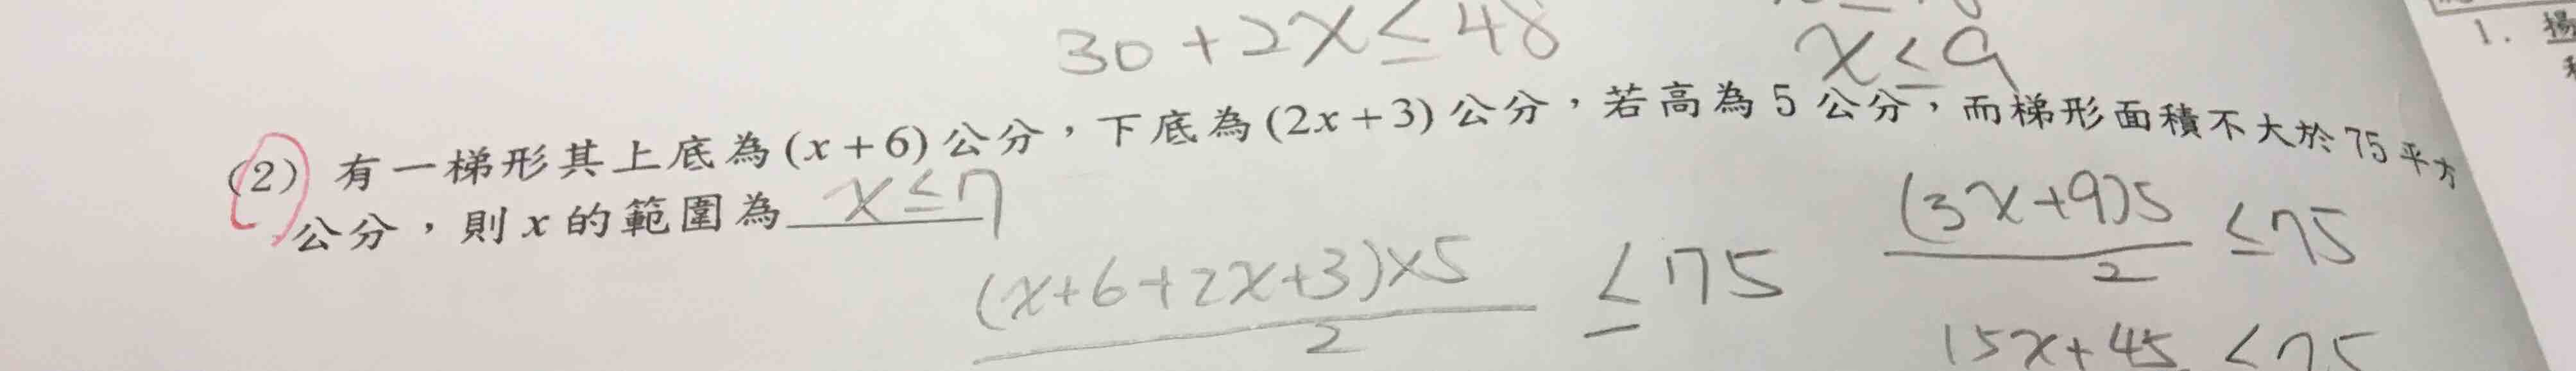 30+2x≤48
x≤9
(2) 有一梯形其上底為(x+6)公分,下底為(2x+3)公分,若高為5公分,而梯形面積不大於75平方
公分,則x的範圍為 x≤7
(x+6+2x+3)×5/2 ≤75
(3x+9)5/2 ≤75
15x+45 ≤75
1. 揚